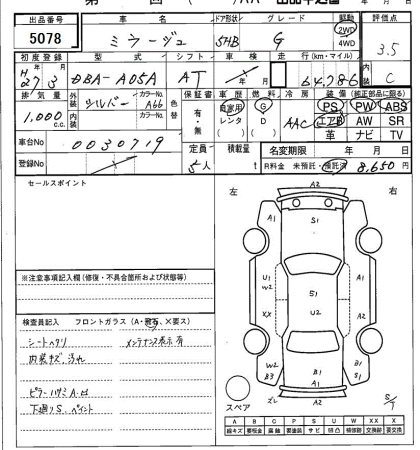 出品番号
5078
車名
ミラージュ
ドア形状
5HB
グレード
G
駆動
2WD
4WD
評価点
3.5
初度登録
H27年3月
型式
DBA-A05A
シフト
AT
車検
年 月
走行(km・マイル)
64,786
内装
C
排気量
1,000 c.c.
外装
シルバー
カラーNo.
A66
内装
カラーNo.
色替
保証書
有・無
車歴
自家用
レンタ
燃料
G
D
冷房
AAC
装備(純正部品に限る)
PS PW ABS
エアB AW SR
革 ナビ TV
車台No
0030719
定員
5人
積載量
t
名変期限 年 月 日
R料金 未預託・預託済 8,650円
登録No
セールスポイント
左
右
A2
A1
S1
A1
U1
W2
S1
A1
XX
U2
A2
W2
B3
B1
A1
B1
S1
A2
スペア
※注意事項記入欄(修復・不具合箇所および状態等)
検査員記入 フロントガラス(A・飛石、×要ス)
シートヘタリ メンテナンス表示有
内装キズ、汚れ
下廻りS、ペイント
A B C P S U W XX X
線キズ 要板金 腐蝕 要塗装 サビ 凹凸 補修跡 交換跡 要交換